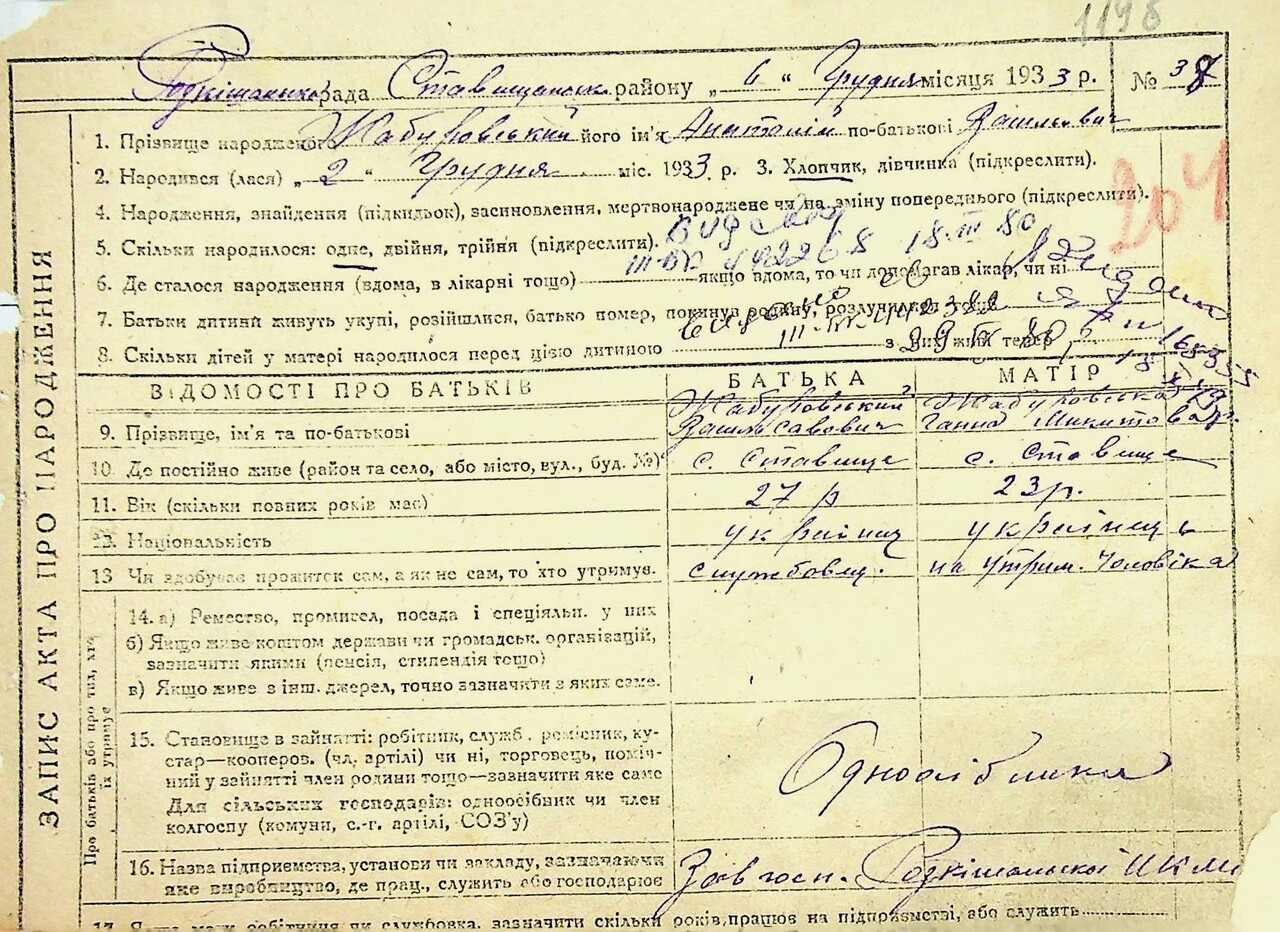 1198
Розкішанська рада Ставищанськ. району „ 6 “ Грудня місяця 1933 р. № 38
1. Прізвище народженого Жабуровський його ім'я Анатолій по-батькові Васильович
2. Народився (лася) „ 2 “ Грудня міс. 1933 р. 3. Хлопчик, дівчинка (підкреслити).
204
4. Народження, знайдення (підкидьок), засиновлення, мертвонароджене чи на зміну попереднього (підкреслити).
5. Скільки народилося: одне, двійня, трійня (підкреслити).
18.III 80
6. Де сталося народження (вдома, в лікарні тощо) якщо вдома, то чи допомагав лікар, чи ні
7. Батьки дитини живуть укупі, розійшлися, батько помер, покинув родину, розлучилися тощо
8. Скільки дітей у матері народилося перед цією дитиною з них живі тепер
ВІДОМОСТІ ПРО БАТЬКІВ БАТЬКА МАТІР
9. Прізвище, ім'я та по-батькові Жабуровський Василь Савович Жабуровська Ганна Микитовна
10. Де постійно живе (район та село, або місто, вул., буд. №) с. Ставище с. Ставище
11. Вік (скільки повних років має) 27 р 23 р.
12. Національність українец українець
13 Чи здобуває прожиток сам, а як не сам, то хто утримує. службовец. на утрим. Чоловіка
ЗАПИС АКТА ПРО НАРОДЖЕННЯ
Про батьків або про тих, хто їх утримує
14. а) Ремество, промисел, посада і спеціяльн. у них
б) Якщо живе коштом держави чи громадськ. організацій,
зазначити якими (пенсія, стипендія тощо)
в) Якщо живе з інш. джерел, точно зазначити з яких саме.
15. Становище в зайнятті: робітник, службов. ремісник, ку-
стар—кооперов. (чл. артілі) чи ні, торговець, поміч-
ний у зайнятті член родини тощо—зазначити яке саме
Для сільських господарів: одноосібник чи член
колгоспу (комуни, с.-г. артілі, СОЗ'у)
Одноосібники
16. Назва підприємства, установи чи закладу, зазначаючи
яке виробництво, де прац., служить або господарює Зав госп. Розкішанської ШКМ
17. Якщо мати робітниця чи службовка, зазначити скільки років працює на підприємстві, або служить